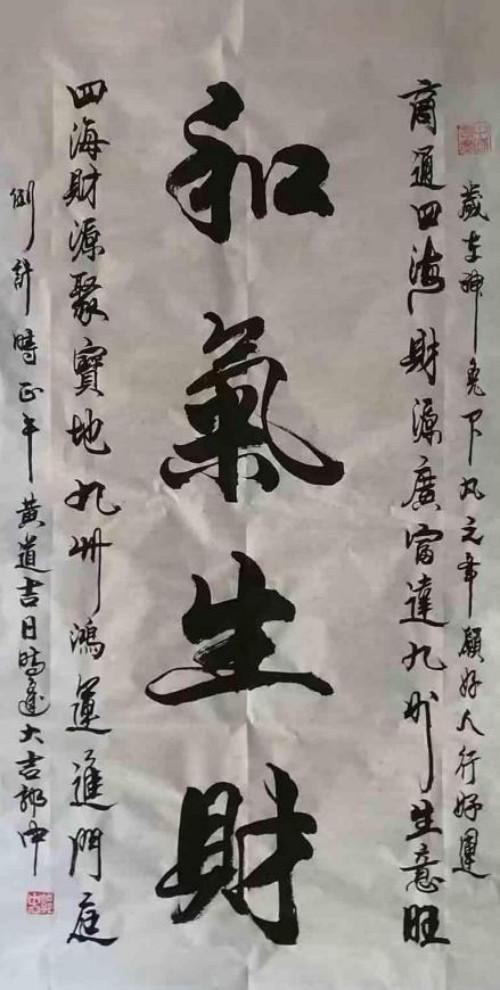 歲在神兔下凡元年願好人行好運
商通四海財源廣富達九州生意旺
和氣生財
四海財源聚寶地九州鴻運進門庭
倒計時正午黃道吉日時逢大吉